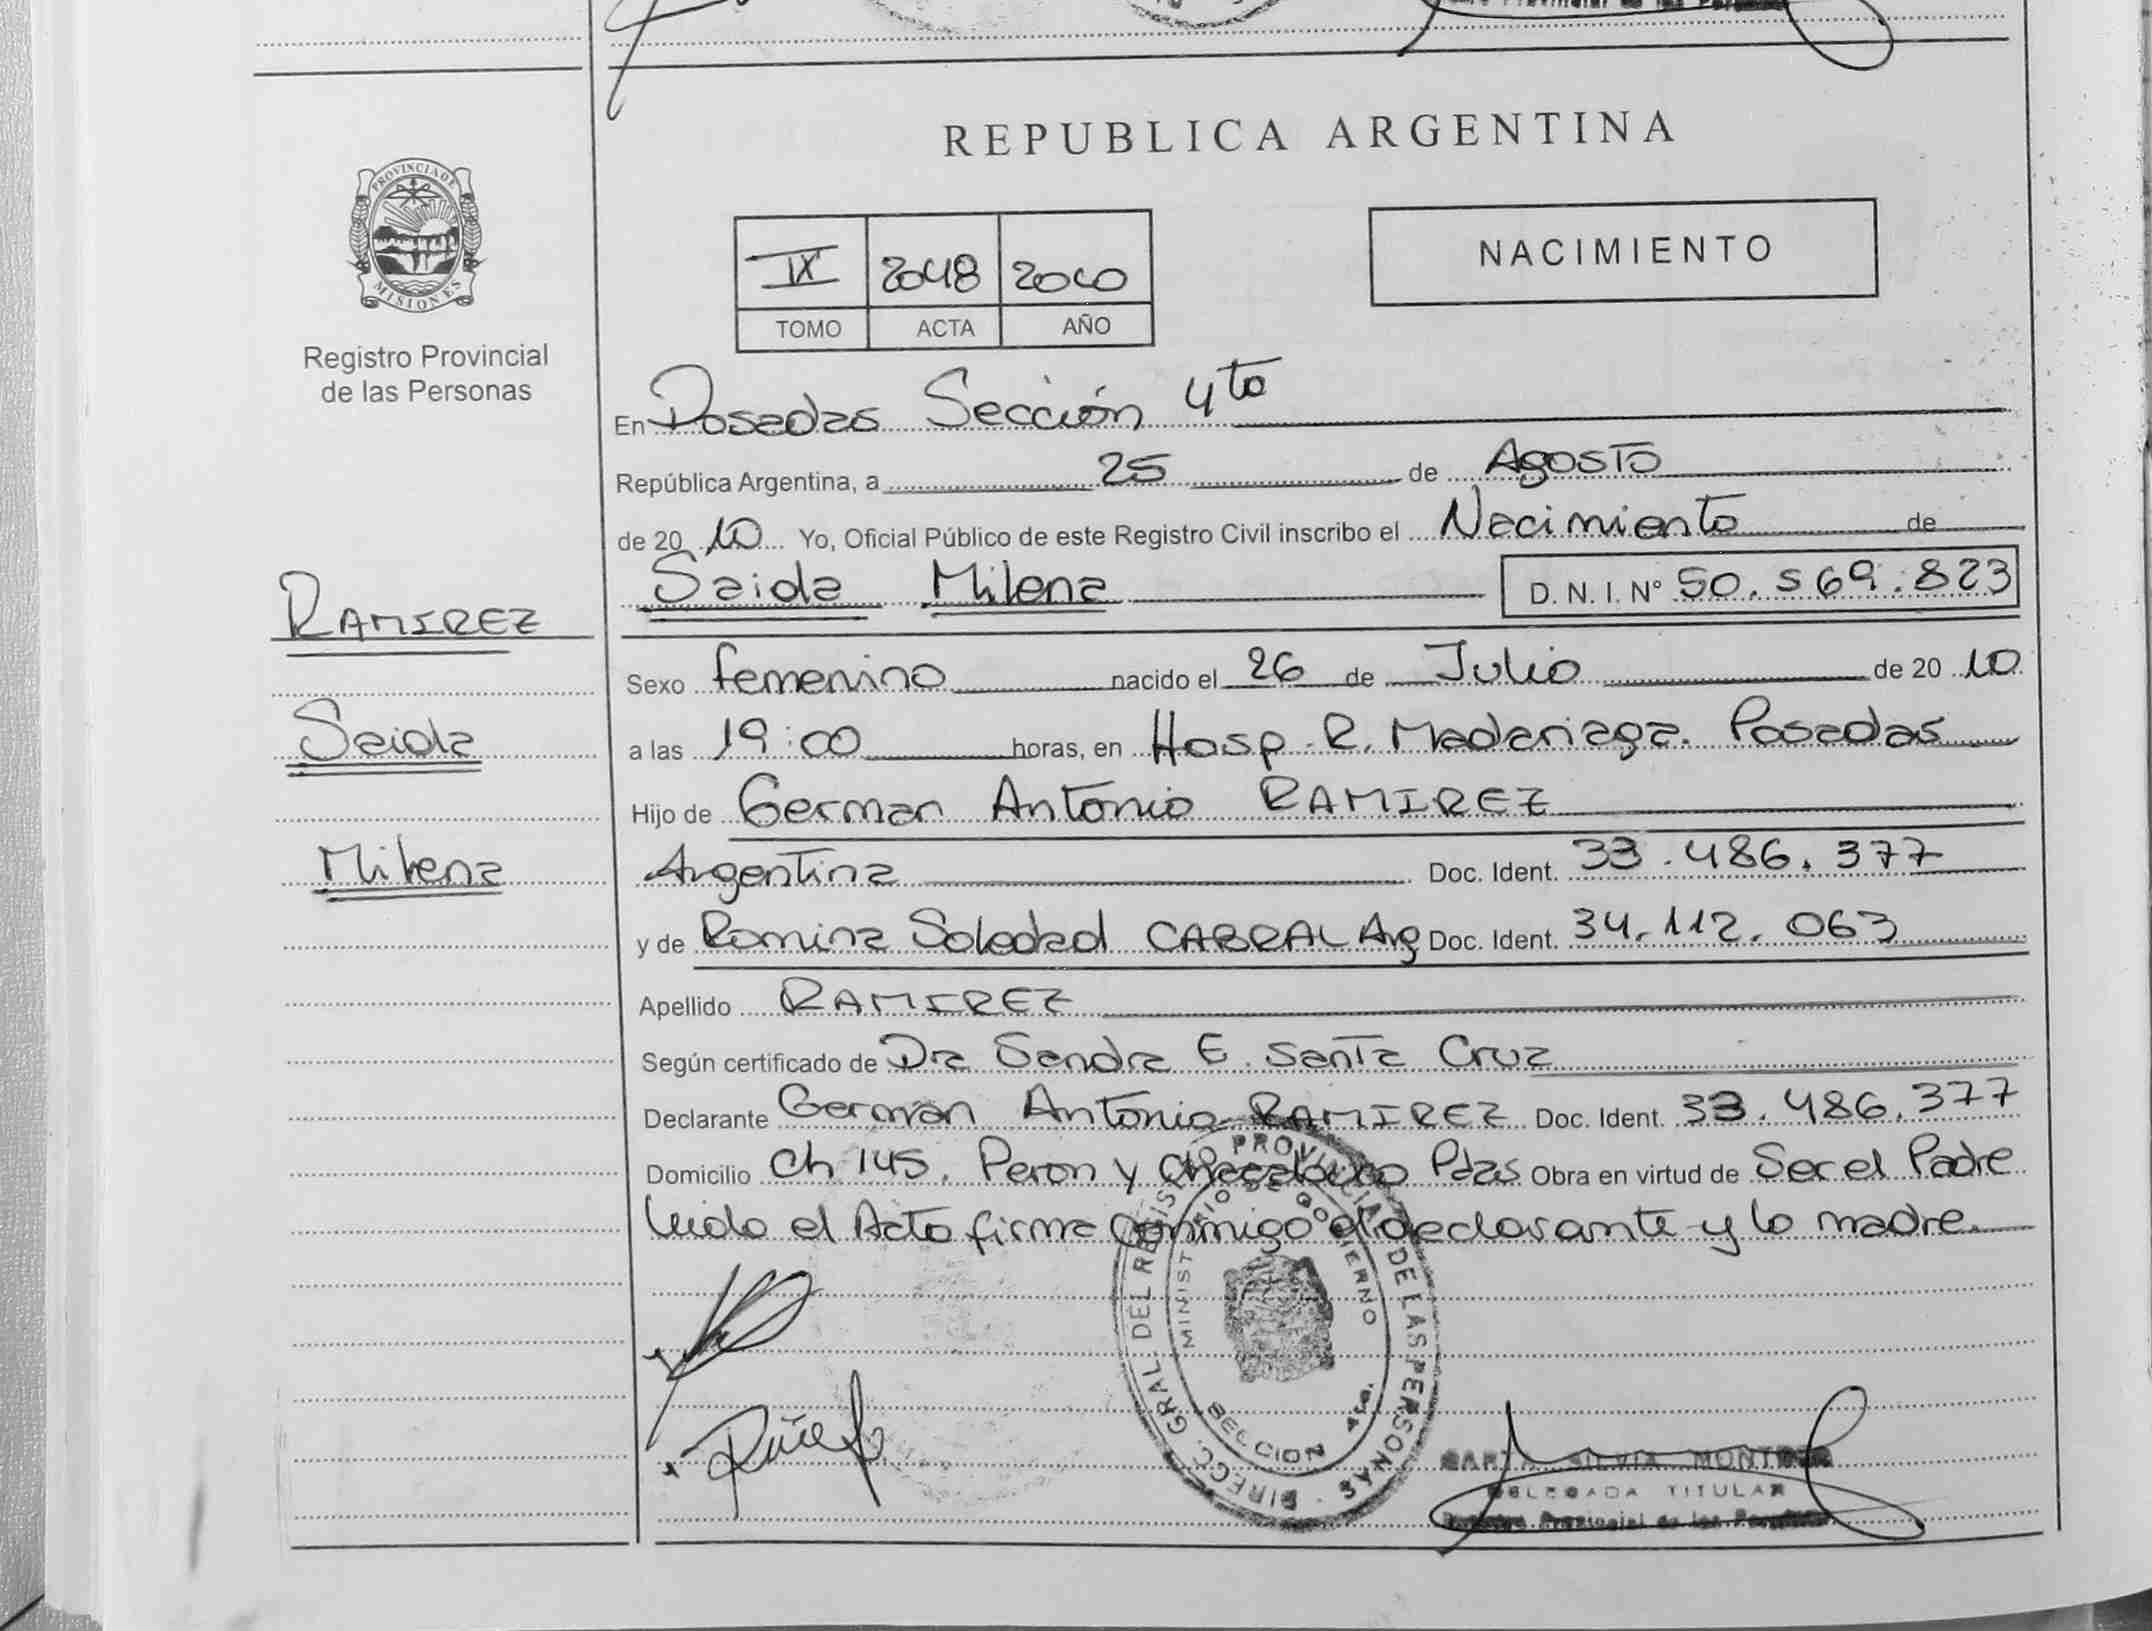 REPUBLICA ARGENTINA
PROVINCIA DE
MISIONES
Registro Provincial
de las Personas
IX 2048 2010
TOMO ACTA AÑO
NACIMIENTO
En Posadas Sección 4ta
República Argentina, a 25 de Agosto
de 20 10 Yo, Oficial Público de este Registro Civil inscribo el Nacimiento de
Saida Milena D. N. I. Nº 50.569.823
RAMIREZ
Saida
Milena
Sexo femenino nacido el 26 de Julio de 20 10
a las 19:00 horas, en Hosp. R. Madariaga. Posadas
Hijo de German Antonio RAMIREZ
Argentina Doc. Ident. 33.486.377
y de Romina Soledad CABRAL Arg Doc. Ident. 34.112.063
Apellido RAMIREZ
Según certificado de Dra Sandra E. Santa Cruz
Declarante German Antonio RAMIREZ Doc. Ident. 33.486.377
Domicilio Ch 145. Peron y Pdas Obra en virtud de Ser el Padre
leido el Acta firma conmigo el declarante y la madre.
DIRECC. GRAL DEL REGISTRO PROVINCIAL DE LAS PERSONAS
MINISTERIO DE GOBIERNO
SECCION 4ta.
SILVIA
DELEGADA TITULAR
Registro Provincial de las Personas